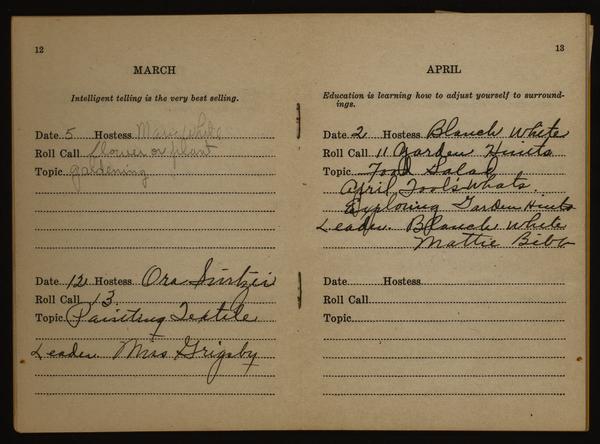 12
MARCH
Intelligent telling is the very best selling.
Date 5 Hostess Marie White
Roll Call flower or plant
Topic gardening
Date 12 Hostess Ora
Roll Call 13
Topic Painting Textile
Leader Mrs Grigsby
13
APRIL
Education is learning how to adjust yourself to surround-
ings.
Date 2 Hostess Blanch White
Roll Call 11 Garden Hints
Topic Food Salad
April Fool's Whats.
Exploring Garden Hints
Leader. Blanch White
Mattie Bibb
Date Hostess
Roll Call
Topic